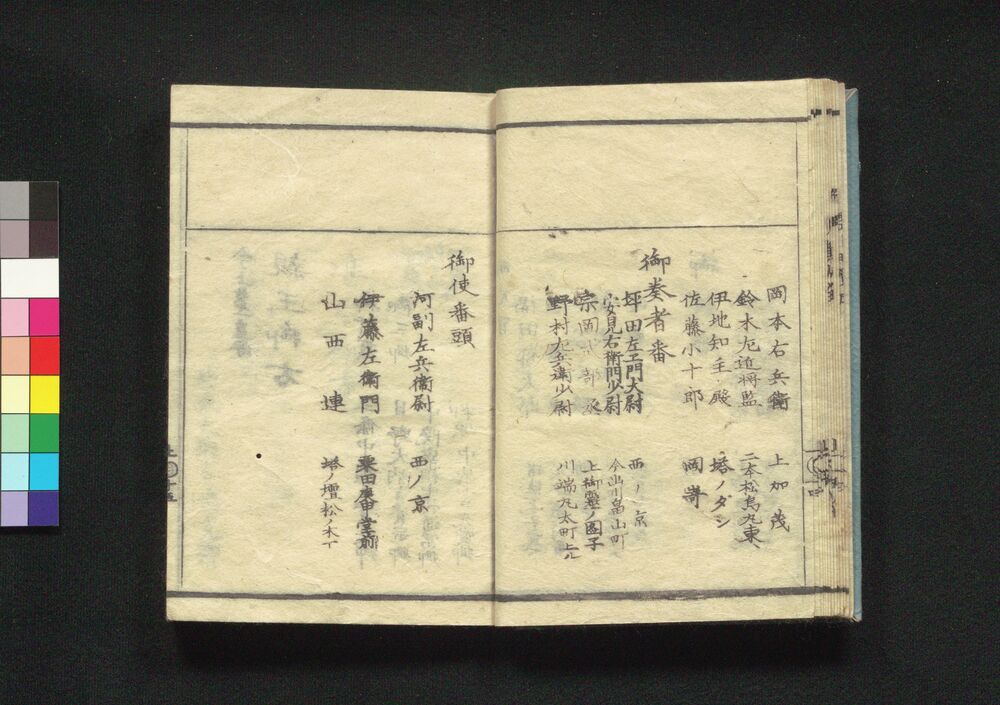 岡本右兵衛 上加茂
鈴木左近将監 二本松烏丸東ヘ
伊地知主殿 塔ノダン
佐藤小十郎 岡嵜
御奏者番
坪田左ヱ門大尉 西ノ京
安見右衛門少尉 今出川畠山町
宗岡式部丞 上御霊ノ図子
野村左兵衛少尉 川端丸太町上ル
御使番頭
河副左兵衛尉 西ノ京
伊藤左衛門 粟田廣中堂前
山西連 塔ノ壇松ノ木丁